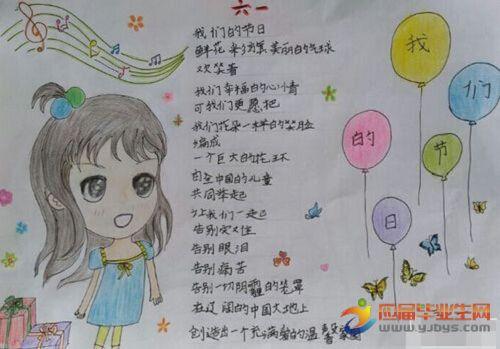 六一
我们的节日
鲜花 彩绸 美丽的气球
欢笑着
我们幸福的心情
可我们更愿把
我们花朵一样的笑脸
编成
一个巨大的花环
由全中国的儿童
共同举起
让我们一起
告别灾难
告别眼泪
告别痛苦
告别一切阴霾的笼罩
在辽阔的中国大地上
创造出一个充满爱的温馨家园
我
们
的
节
日
应届毕业生网
www.yjbys.com